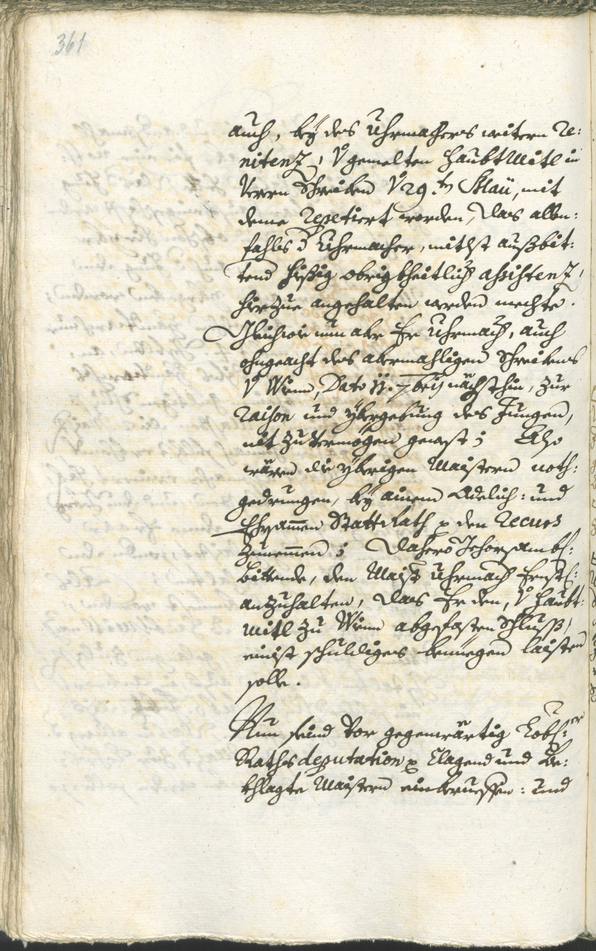 361
auch, bey des Uhrmachers weitern Re:
nitenz, V gemelten Haubt Mitl in
Ihrem Schreiben V 29.ten May, mit
deme repetiert worden, das allen:
fahls d Uhrmacher, mitlst außbit:
tend hießig obrigkheitlich assistenz,
hierzue angehalten werden mechte.
Gleichwie nun aber Er Uhrmach, auch
ohngeacht des abermahligen Schreibens
V Wienn, dato 11. 7bris nächsthin, zur
raison und ybergebung des Jungen,
nit zuvermögen gewest; Also
wären die ybrigen Maistern noth:
gedrungen, bey ainem Adelich: und
Ehrsamen Statt Rath p den Recurs
zunemmen; Dahero Gehorsambst:
bittende, den Maist Uhrmach Ernstl:
anzuhalten, das Er den, V Haubt
Mitl zu Wienn abgefasten Schluß,
einist schuldiges benuegen laisten
solle.
Nun seind vor gegenwärtig Lobl:
Raths deputation p Clagend und Be:
khlagte Maistern einberueffen: und